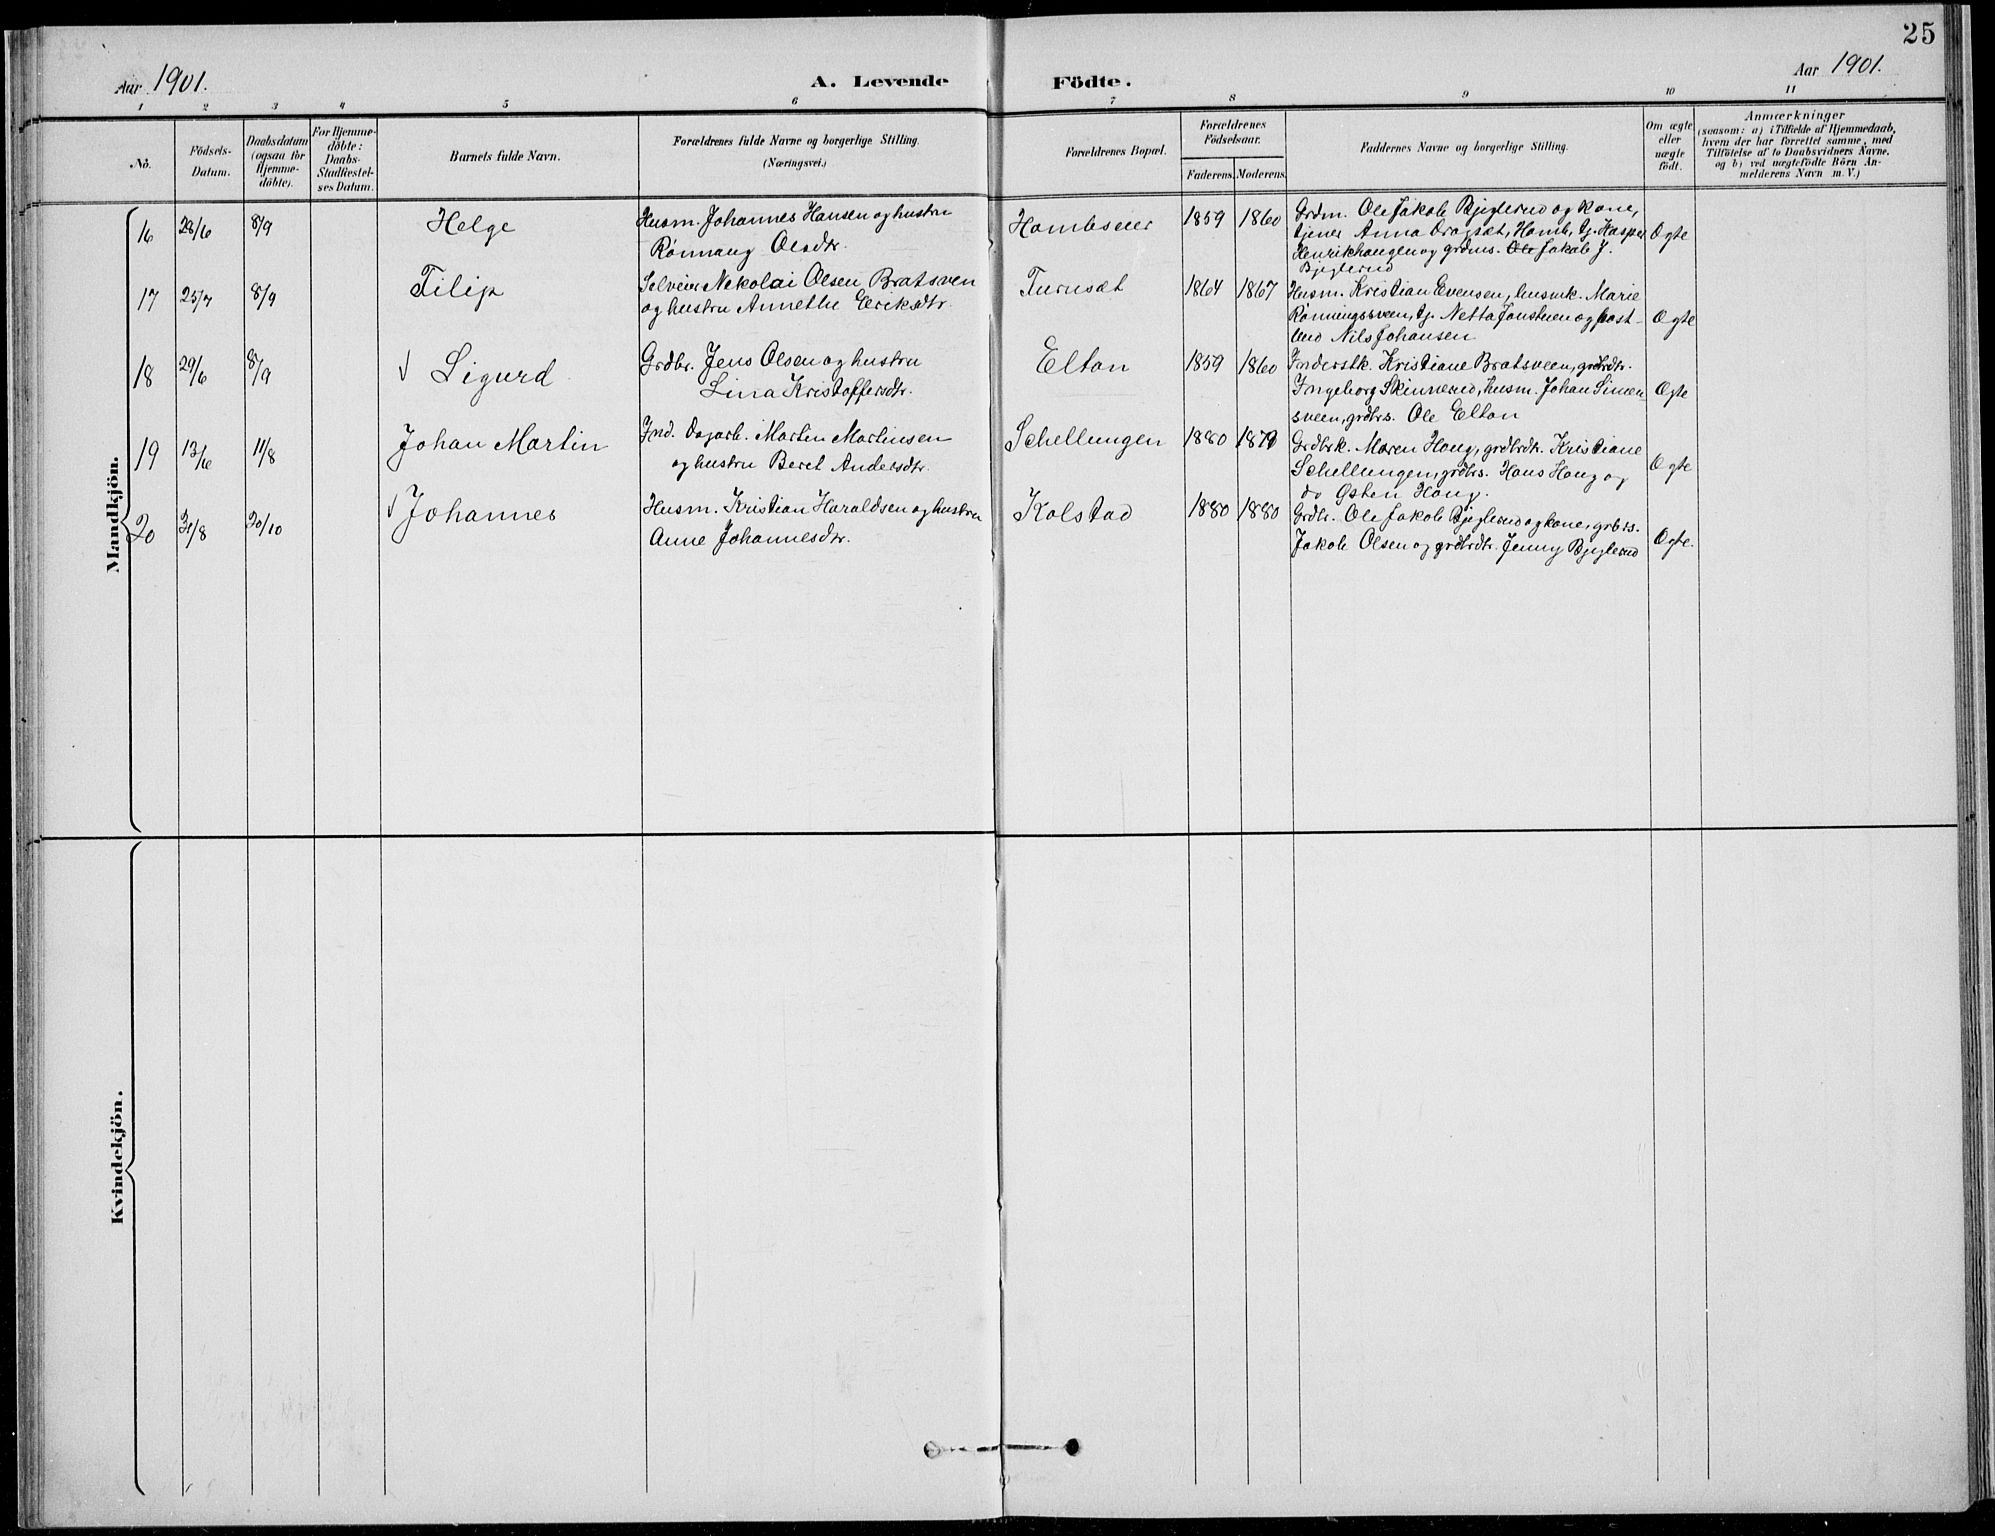 25
Aar 1901.
A. Levende Födte.
Aar 1901.
1 2 3 4 5 6 7 8 9 10 11
No.
Födsels-
Datum.
Daabsdatum
(ogsaa for
Hjemme-
döbte).
For Hjemme-
döbte:
Daabs-
Stadfestel-
ses Datum.
Barnets fulde Navn.
Forældrenes fulde Navne og borgerlige Stilling.
(Næringsvei.)
Forældrenes Bopæl.
Forældrenes
Födselsaar.
Faderens. Moderens.
Faddernes Navne og borgerlige Stilling.
Om ægte
eller
uægte
födt.
Anmærkninger
(saasom: a) i Tilfælde af Hjemmedaab,
hvem der har forrettet samme, med
Tilföielse af to Daabsvidners Navne,
og b) ved uægtefödte Börn An-
melderens Navn m. V.)
Mandkjön.
16 28/6 8/9 Helge
Husm. Johannes Hansen og hustru
Rønnaug Olsdtr.
Hambseier 1859 1860
Grdm. Ole Jakob Bjeglerud og kone,
tjener Anna Dragsæt, Hamb, tj. Kasper
Henrikhaugen og grdms. Ole Jakob J.
Bjeglerud
Ægte
17 25/7 8/9 Filip
Selveier Nekolai Olsen Bratsven
og hustru Annethe Eriksdtr.
Turnsæt 1864 1867
Husm. Kristian Evensen, husmk. Marie
Rønningssveen, tj. Netta Jonstuen og post-
bud Nils Johansen
Ægte
18 29/6 8/9 √ Sigurd
Grdbr. Jens Olsen og hustru
Lina Kristoffersdtr.
Elton 1859 1860
Inderstk. Kristiane Bratsveen, grdbrdtr.
Ingeborg Skinnerud, husm. Johan Simen-
sveen, grdbrs. Ole Elton
Ægte
19 13/6 11/8 Johan Martin
Ind. dagarb. Martin Martinsen
og hustru Beret Andersdtr.
Schellungen 1880 1879
Grdbrk. Maren Houg, grdbrdtr. Kristiane
Schellungen, grdbrs. Hans Houg og
do Østen Houg.
Ægte
20 31/8 20/10 √ Johannes
Husm. Kristian Haraldsen og hustru
Anne Johannesdtr.
Kolstad 1880 1880
Grdbr. Ole Jakob Bjeglerud og kone, grbrs.
Jakob Olsen og grdbrdtr. Jenny Bjeglerud
Ægte.
Kvindekjön.